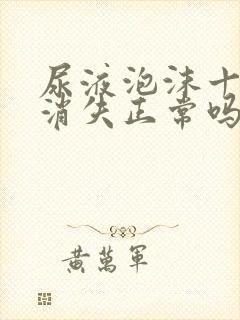 尿液泡沫十
消失正常吗
黄萬軍